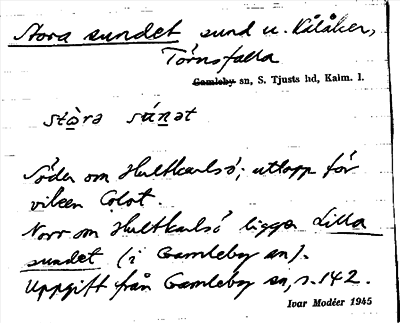 Stora sundet sund u. Kålåker,
Törnsfalla
Gamleby sn, S. Tjusts hd, Kalm. l.
stòra súnət
Söder om Hultkarlsö; utlopp för
viken Colot.
Norr om Hultkarlsö ligger Lilla
sundet (i Gamleby sn).
Uppgift från Gamleby sn, s. 142.
Ivar Modéer 1945